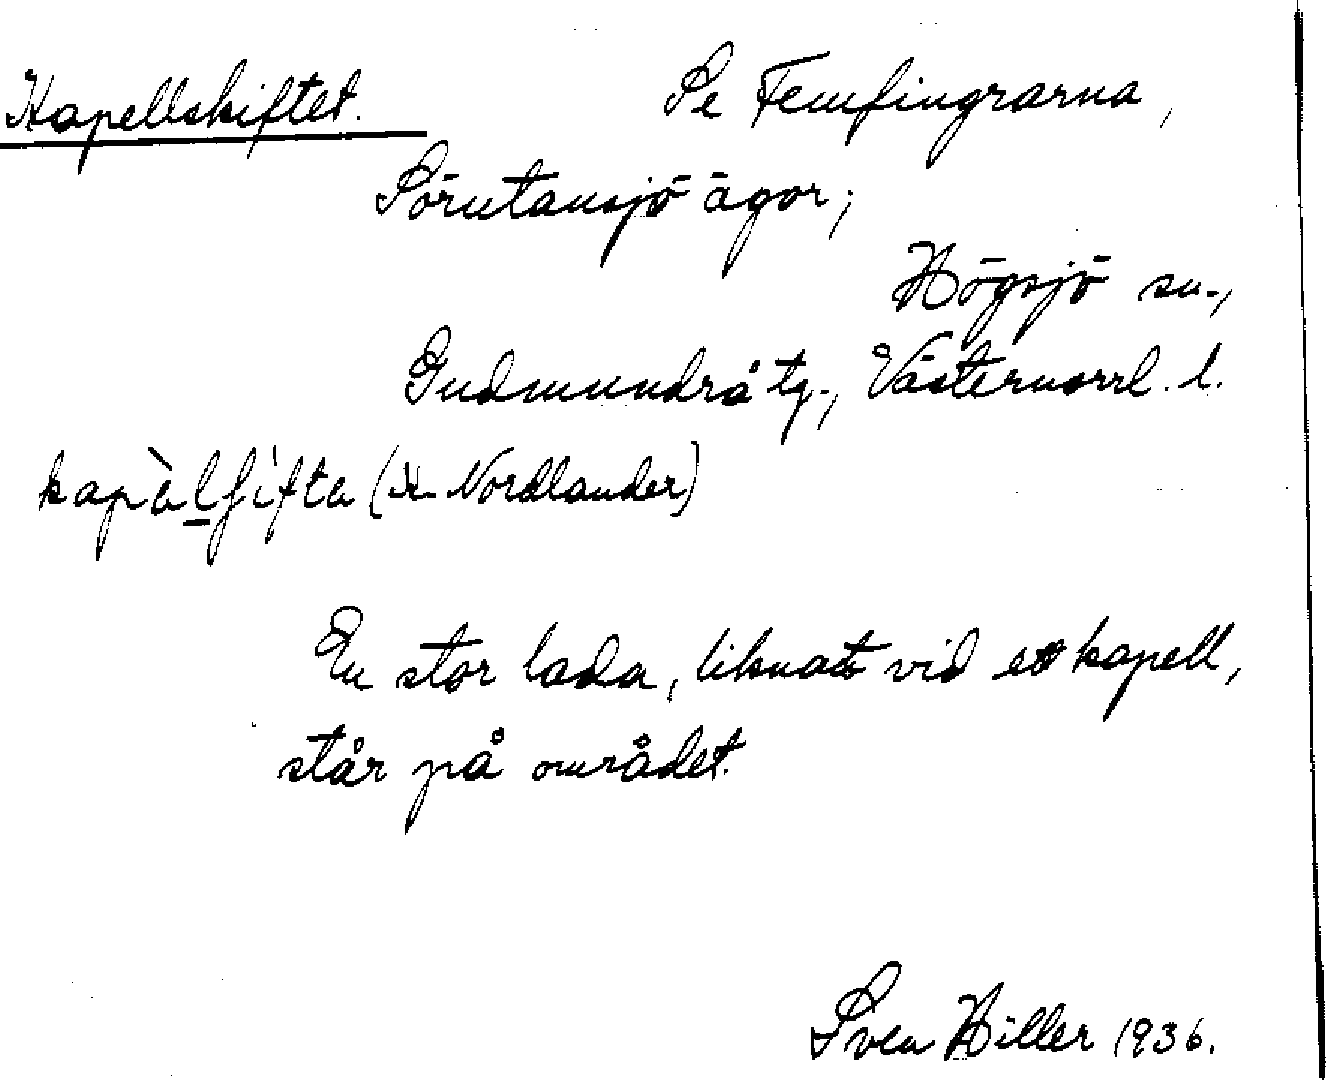 Kapellskiftet. Se Femfingrarna,
Sörutansjö ägor;
Högsjö sn.,
Gudmundrå tg., Västernorrl. l.
kapàlʃìfta (J. Nordlander)
En stor lada, liknats vid ett kapell,
står på området.
Sven Hiller 1936.